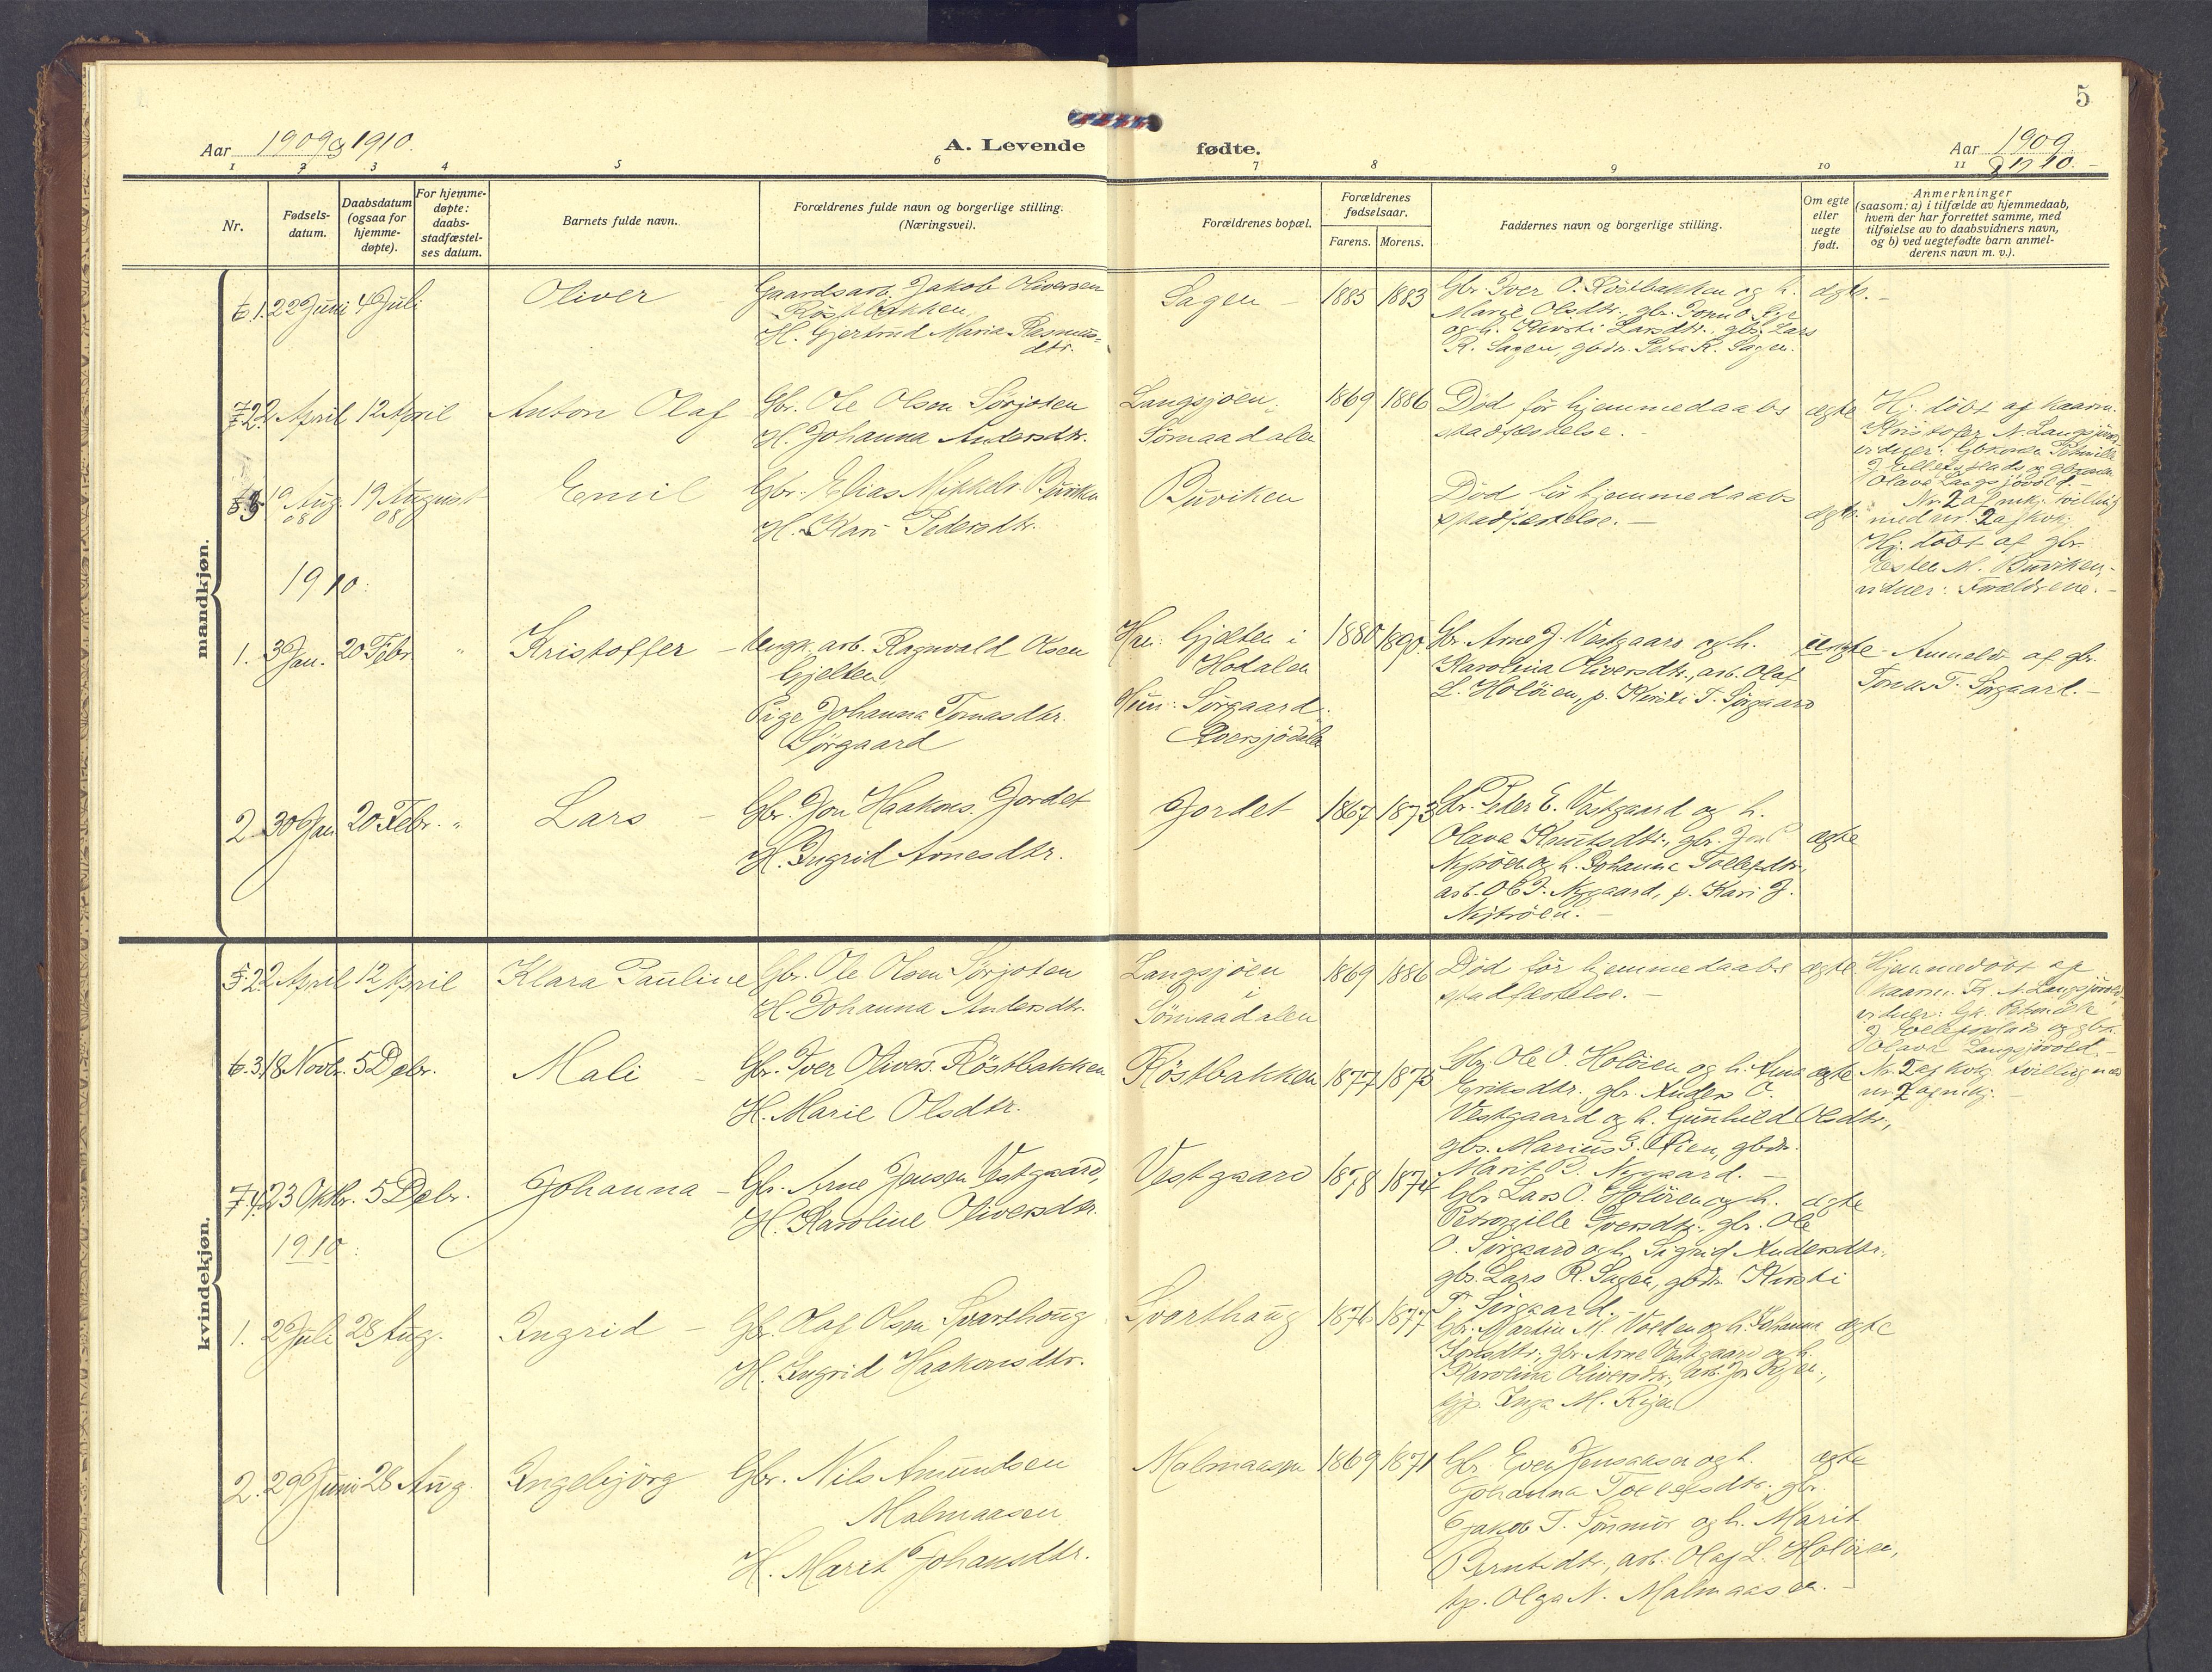 5
Aar 1909 & 1910.
A. Levende fødte.
Aar 1909 & 1910.-
1 2 3 4 5 6 7 8 9 10 11
Nr.
Fødsels-
datum.
Daabsdatum
(ogsaa for
hjemme-
døpte).
For hjemme-
døpte:
daabs-
stadfæstel-
ses datum.
Barnets fulde navn.
Forældrenes fulde navn og borgerlige stilling.
(Næringsvei).
Forældrenes bopæl.
Forældrenes
fødselsaar.
Farens. Morens.
Faddernes navn og borgerlige stilling.
Om egte
eller
uegte
født.
Anmerkninger
(saasom: a) i tilfælde av hjemmedaab,
hvem der har forrettet samme, med
tilføielse av to daabsvidners navn,
og b) ved uegtefødte barn anmel-
derens navn m. v.).
mandkjøn.
1. 22 Juni 4 Juli Oliver
Gaardsarb. Jakob Oliversen
Röstbakken
H. Gjertrud Maria Rasmus-
dtr.
Sagen - 1885 1883
Gbr. Iver O. Röstbakken og h.
Marie Olsdtr., gbr.
og h. Kirsti Larsdtr., gbs. Lars
R. Sagen, gbdr. Petra R. Sagen.
ægte.-
2. 2 April 12 April Anton Olaf
Gbr. Ole Olsen Sörjoten
H. Johanna Andersdtr.
Langsjöen
Sömaadalen
1869 1886
Död för hjemmedaabs
stadfæstelse.
ægte
Hj. döbt af kaarm.
Kristofer N. Langsjövold
vidner: Petronille
J. Ellefsplads og
Olava Langsjövold.-
Nr. 2 af mkj. tvilling
med nr. 2 af kvkj.
3 19 Aug. 08 19 August 08 Emil
Gbr. Elias Mikkels. Buviken
H. Kari Pedersdtr.
Buviken
Död för hjemmedaabs
stadfæstelse.-
ægte.
Hj. döbt af gbr.
Esten M. Buviken,-
vidner: Forældrene.-
1910:
1. 3 Jan. 20 Febr. " Kristoffer -
arb. Ragnvald Olsen
Gjelten
Pige Johanna Tomasdtr.
Sörgaard
Han: Gjelten i
Hodalen
Hun: Sörgaard
1880 1890.
Gbr. Arne J. Vestgaard og h.
Karolina Oliversdtr., arb. Olaf
L. Holöien, p. Kirsti T. Sörgaard
uægte - Anmeldt af gbr.
Tomas T. Sörgaard.-
2. 30 Jan 20 Febr. " Lars -
Gbr. Jon Haakons. Jordet
H. Ingrid Arnesdtr.
Jordet 1867 1873
Gbr. Peder E. Vestgaard og h.
Olava Knutsdtr., gbr.
og h. Johanna Tollefsdtr.
arb. Ole J. Nygaard, p. Kari J.
Nytröen.-
ægte
kvindekjøn.
2 2 April 12 April Klara Pauline
Gbr. Ole Olsen Sörjoten
H. Johanna Andersdtr.
Langsjöen
i
Sömaadalen
1869 1886
Död för hjemmedaabs
stadfæstelse.-
ægte
Hjemmedöbt af
kaarm. Kr. N. Langsjövold
vidner: Petronille
J. Ellefsplads og
Olava Langsjövold.-
Nr. 2 af kvkj. tvilling med
nr. 2 af mkj.-
3. 18 Novbr. 5 Debr. Mali -
Gbr. Iver Olivers. Röstbakken
H. Marie Olsdtr.
Röstbakken 1877 1875
Gbr. Ole O. Holöien og h. Anna
Eriksdtr., gbr. Anders O.
Vestgaard og h. Gunhild Olsdtr.,
gbs. Marius E. Öien, gbdr.
Marit P. Nygaard.-
ægte
4. 23 Oktbr. 5 Debr. Johanna -
Gbr. Arne Jensen Vestgaard,
H. Karoline Oliversdtr.
Vestgaard 1878 1874
Gbr Lars O. Holöien og h.
Petronille Iversdtr., gbr. Ole
O. Sörgaard og h. Sigrid Andersdtr.
gbs. Lars R. Sagen, gbdr. Kirsti
T. Sörgaard.-
ægte
1910:
1. 2 Juli 28 Aug. Ingrid -
Gbr. Olaf Olsen Svarthoug
H. Ingrid Haakonsdtr.
Svarthaug 1876 1877
Gbr. Martin M. Volden og h. Johanna
gbr. Arne Vestgaard og h.
Karolina Oliversdtr., arb. Jon
Inga M.
ægte
2. 29 Juni 28 Aug. Ingebjörg
Gbr. Nils Amundsen
Malmaasen
H. Marit Johansdtr.
Malmaasen 1869 1871
Gbr. Even Jensaasen og h.
Johanna Tollefsdtr., gbr.
Jakob T. og h. Marit
Berntsdtr., arb. Olaf L. Holöien,
tp. Olga N. Malmaasen.-
ægte